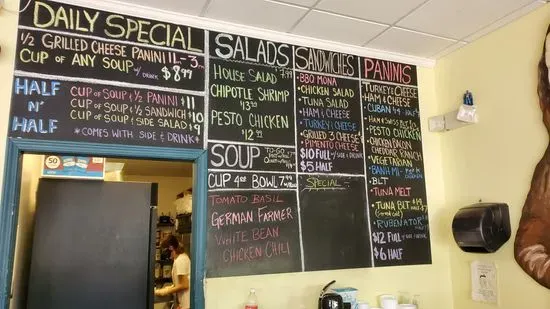 DAILY SPECIAL
1/2 GRILLED CHEESE PANINI 11-3
CUP OF ANY SOUP W/ DRINK $8.99
HALF N' HALF
CUP OF SOUP & 1/2 PANINI $11
CUP OF SOUP & 1/2 SANDWICH $10
CUP OF SOUP & SIDE SALAD $9
*COMES WITH SIDE & DRINK*
SALADS
HOUSE SALAD 7.99
CHIPOTLE SHRIMP
$13.99
PESTO CHICKEN
$12.99
SOUP
TO-GO
CUP 4.99 BOWL 7.99
TOMATO BASIL
GERMAN FARMER
WHITE BEAN
CHICKEN CHILI
SANDWICHES
BBQ MONA
CHICKEN SALAD
TUNA SALAD
HAM & CHEESE
TURKEY & CHEESE
GRILLED 3 CHEESE
PIMENTO CHEESE
$10 FULL W/ SIDE & DRINK
$5 HALF
SPECIAL
PANINIS
TURKEY & CHEESE
HAM & CHEESE
CUBAN
HAM & SWISS
PESTO CHICKEN
CHICKEN BACON
CHEDDAR RANCH
VEGETARIAN
BANH MI
BLT
TUNA MELT
TUNA BET
RUBENATOR
$12 FULL
$6 HALF
50